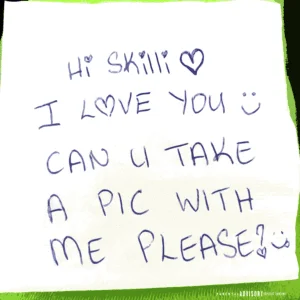 Hi Skilli ♡
I LOVE YOU :)
CAN U TAKE
A PIC WITH
ME PLEASE? :)
ADVISORY